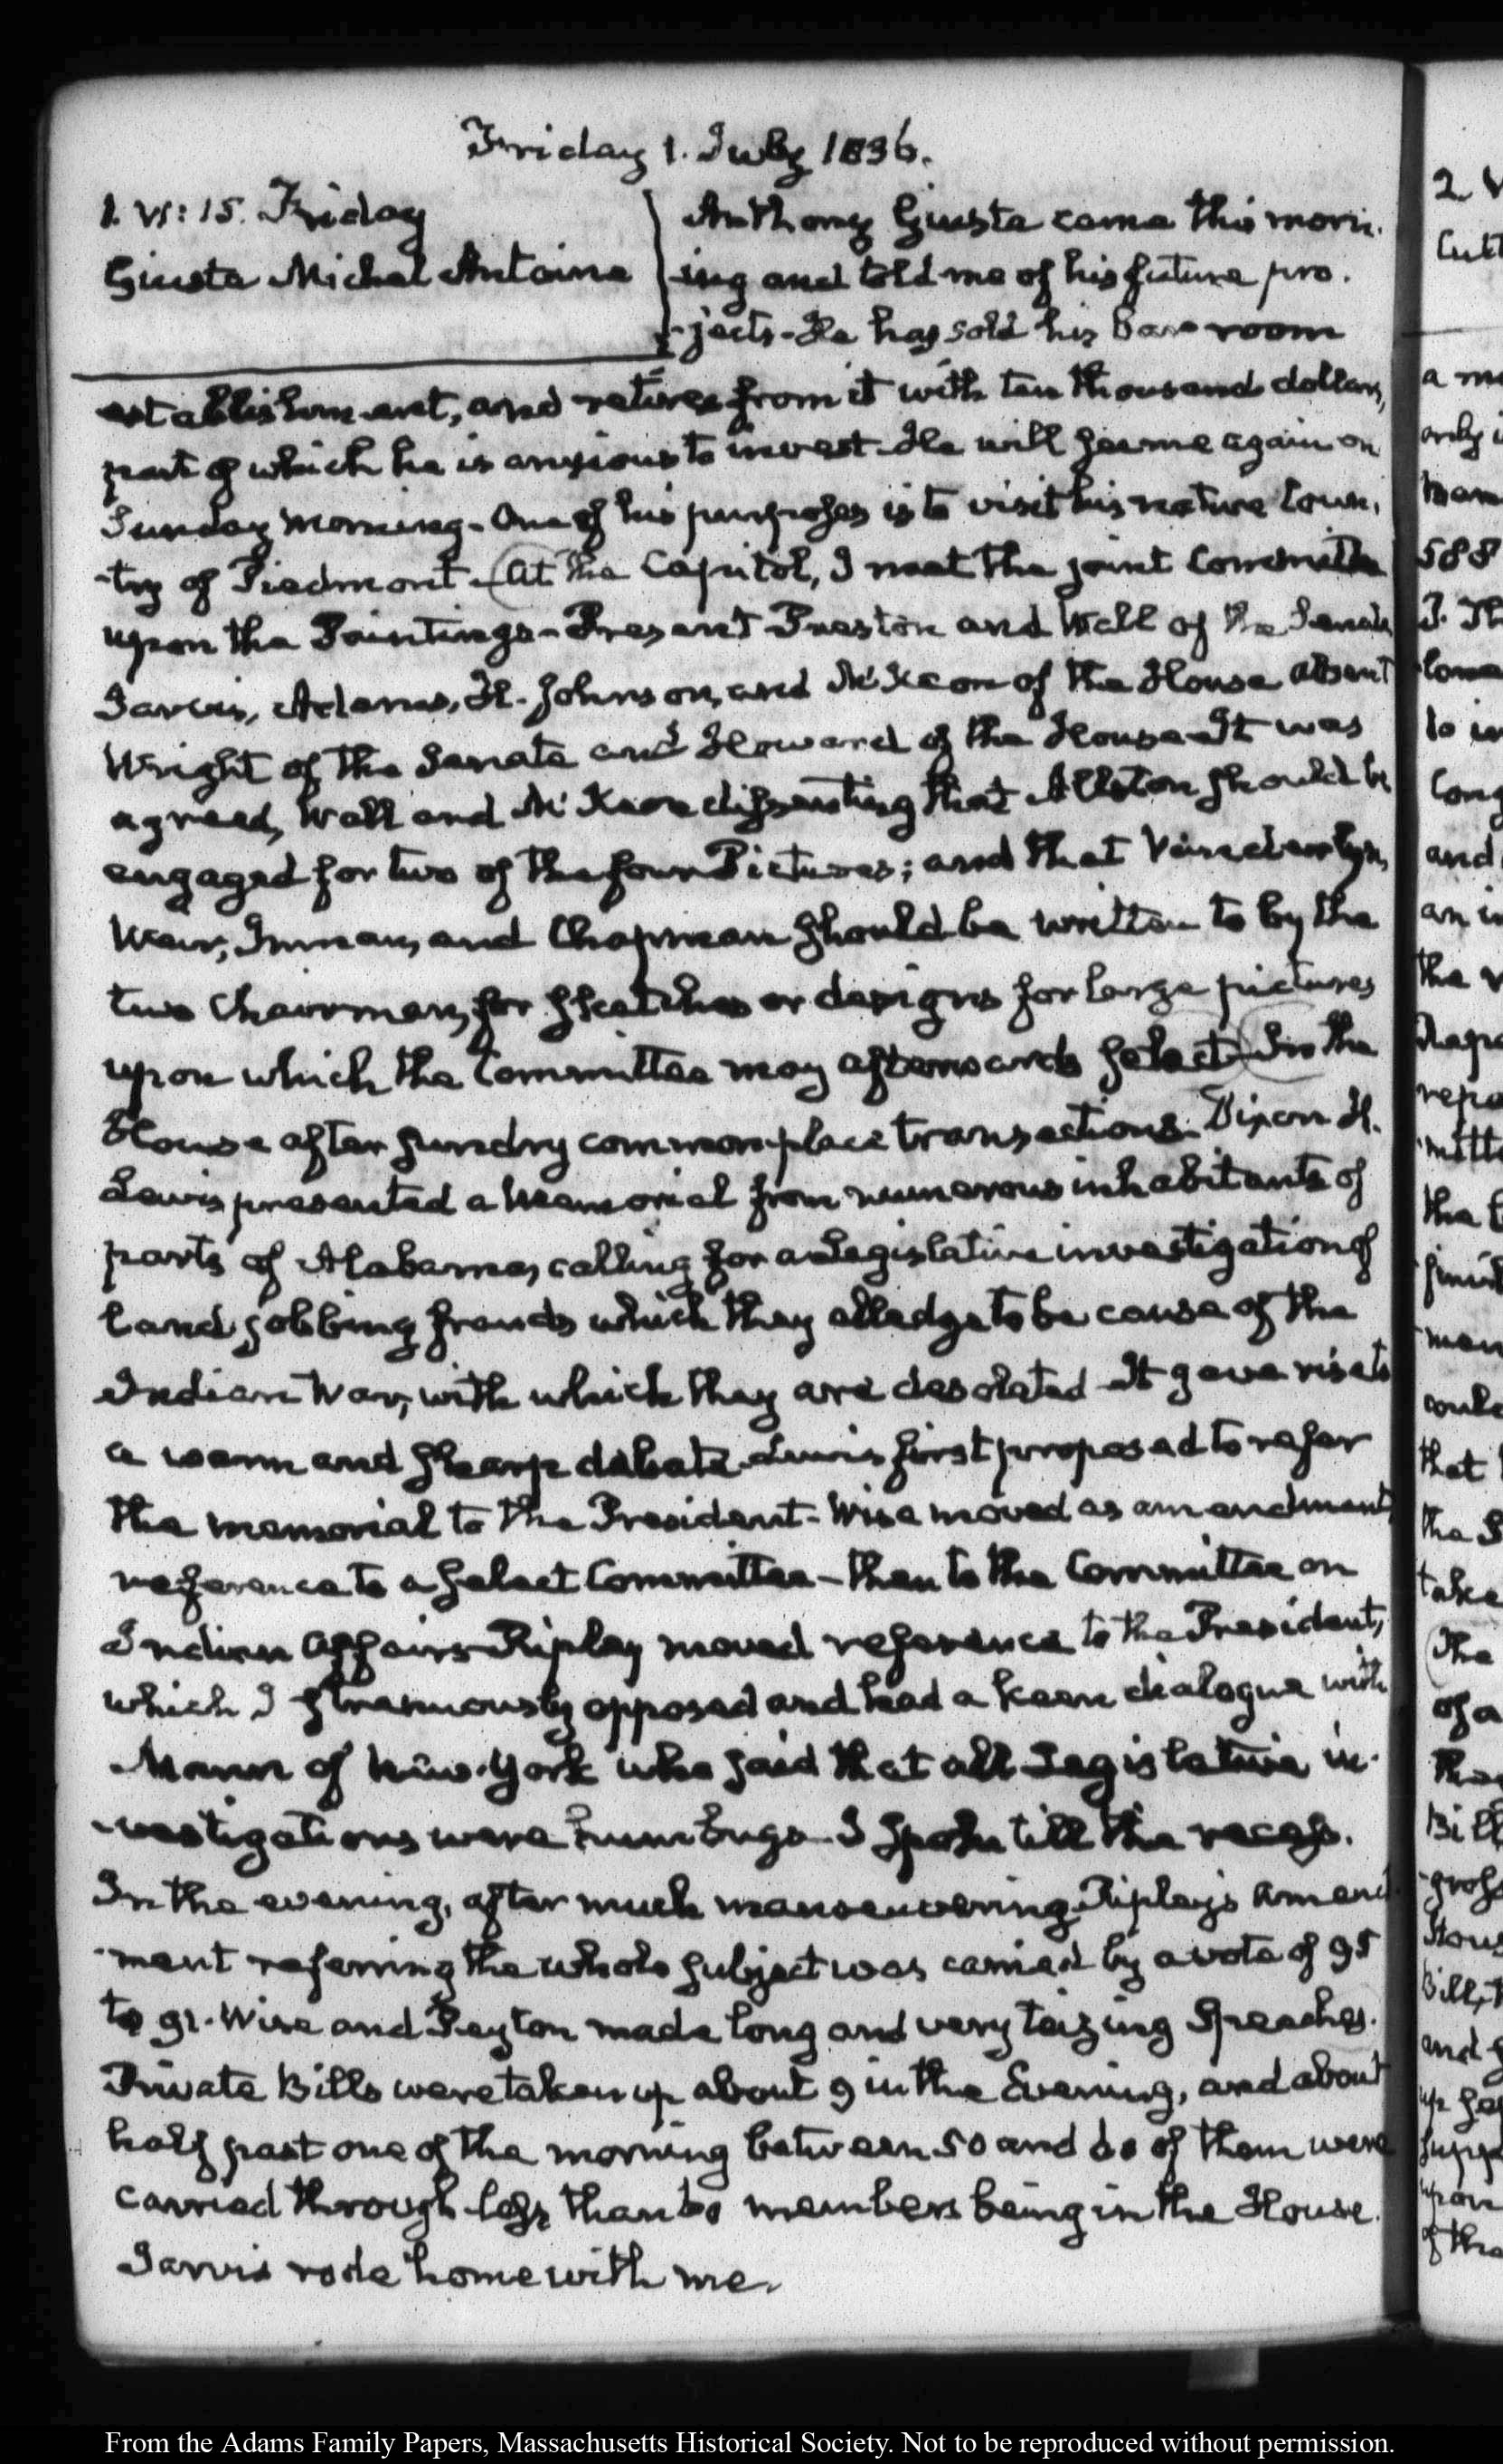 Friday 1. July 1836.
1. VI:15. Friday
Giusta Michel Antoine
Anthony Giusta came this morn-
ing and told me of his future pro-
-jects- He has sold his Bar room
establishment, and retires from it with ten thousand dollars,
part of which he is anxious to invest- He will see me again on
Sunday Morning- One of his purposes is to visit his native Coun-
-try of Piedmont- At the Capitol, I met the joint Committee
upon the Paintings- Present Preston and Wall of the Senate
Jarvis, Adams, H. Johnson, and McKeon of the House absent
Wright of the Senate and Howard of the House- It was
agreed, Wall and McKeon dissenting that Allston should be
engaged for two of the four Pictures; and that Vanderlyn,
Weir, Inman, and Chapman should be written to by the
two Chairmen, for sketches or designs for large pictures
upon which the Committee may afterwards select- In the
House after sundry common place transactions. Dixon H.
Lewis presented a Memorial from numerous inhabitants of
parts of Alabama, calling for a Legislative investigation of
land jobbing frauds which they alledge to be cause of the
Indian War, with which they are desolated- It gave rise to
a warm and sharp debate- Lewis first proposed to refer
the memorial to the President- Wise moved as amendment
reference to a select Committee- then to the Committee on
Indian Affairs- Ripley moved reference to the President,
which I strenuously opposed and had a keen dialogue with
Mann of New-York who said that all Legislative in-
-vestigations were humbugs- I spoke till the recess.
In the evening, after much manoeuvering, Ripley's amend-
-ment referring the whole subject was carried by a vote of 95
to 91. Wise and Peyton made long and very teizing Speeches.
Private Bills were taken up about 9 in the Evening, and about
half past one of the morning between 50 and 60 of them were
carried through less than 60 members being in the House.
Jarvis rode home with me.
2 V
Cutt
a m
only i
mam
588
J. Th
come
to in
Cong
and
an i
the v
repo
mitt
the
men
could
that
the S
take
The
of a
Bill
gross
Hous
bill, t
and
up
supp
upon
of the
From the Adams Family Papers, Massachusetts Historical Society. Not to be reproduced without permission.